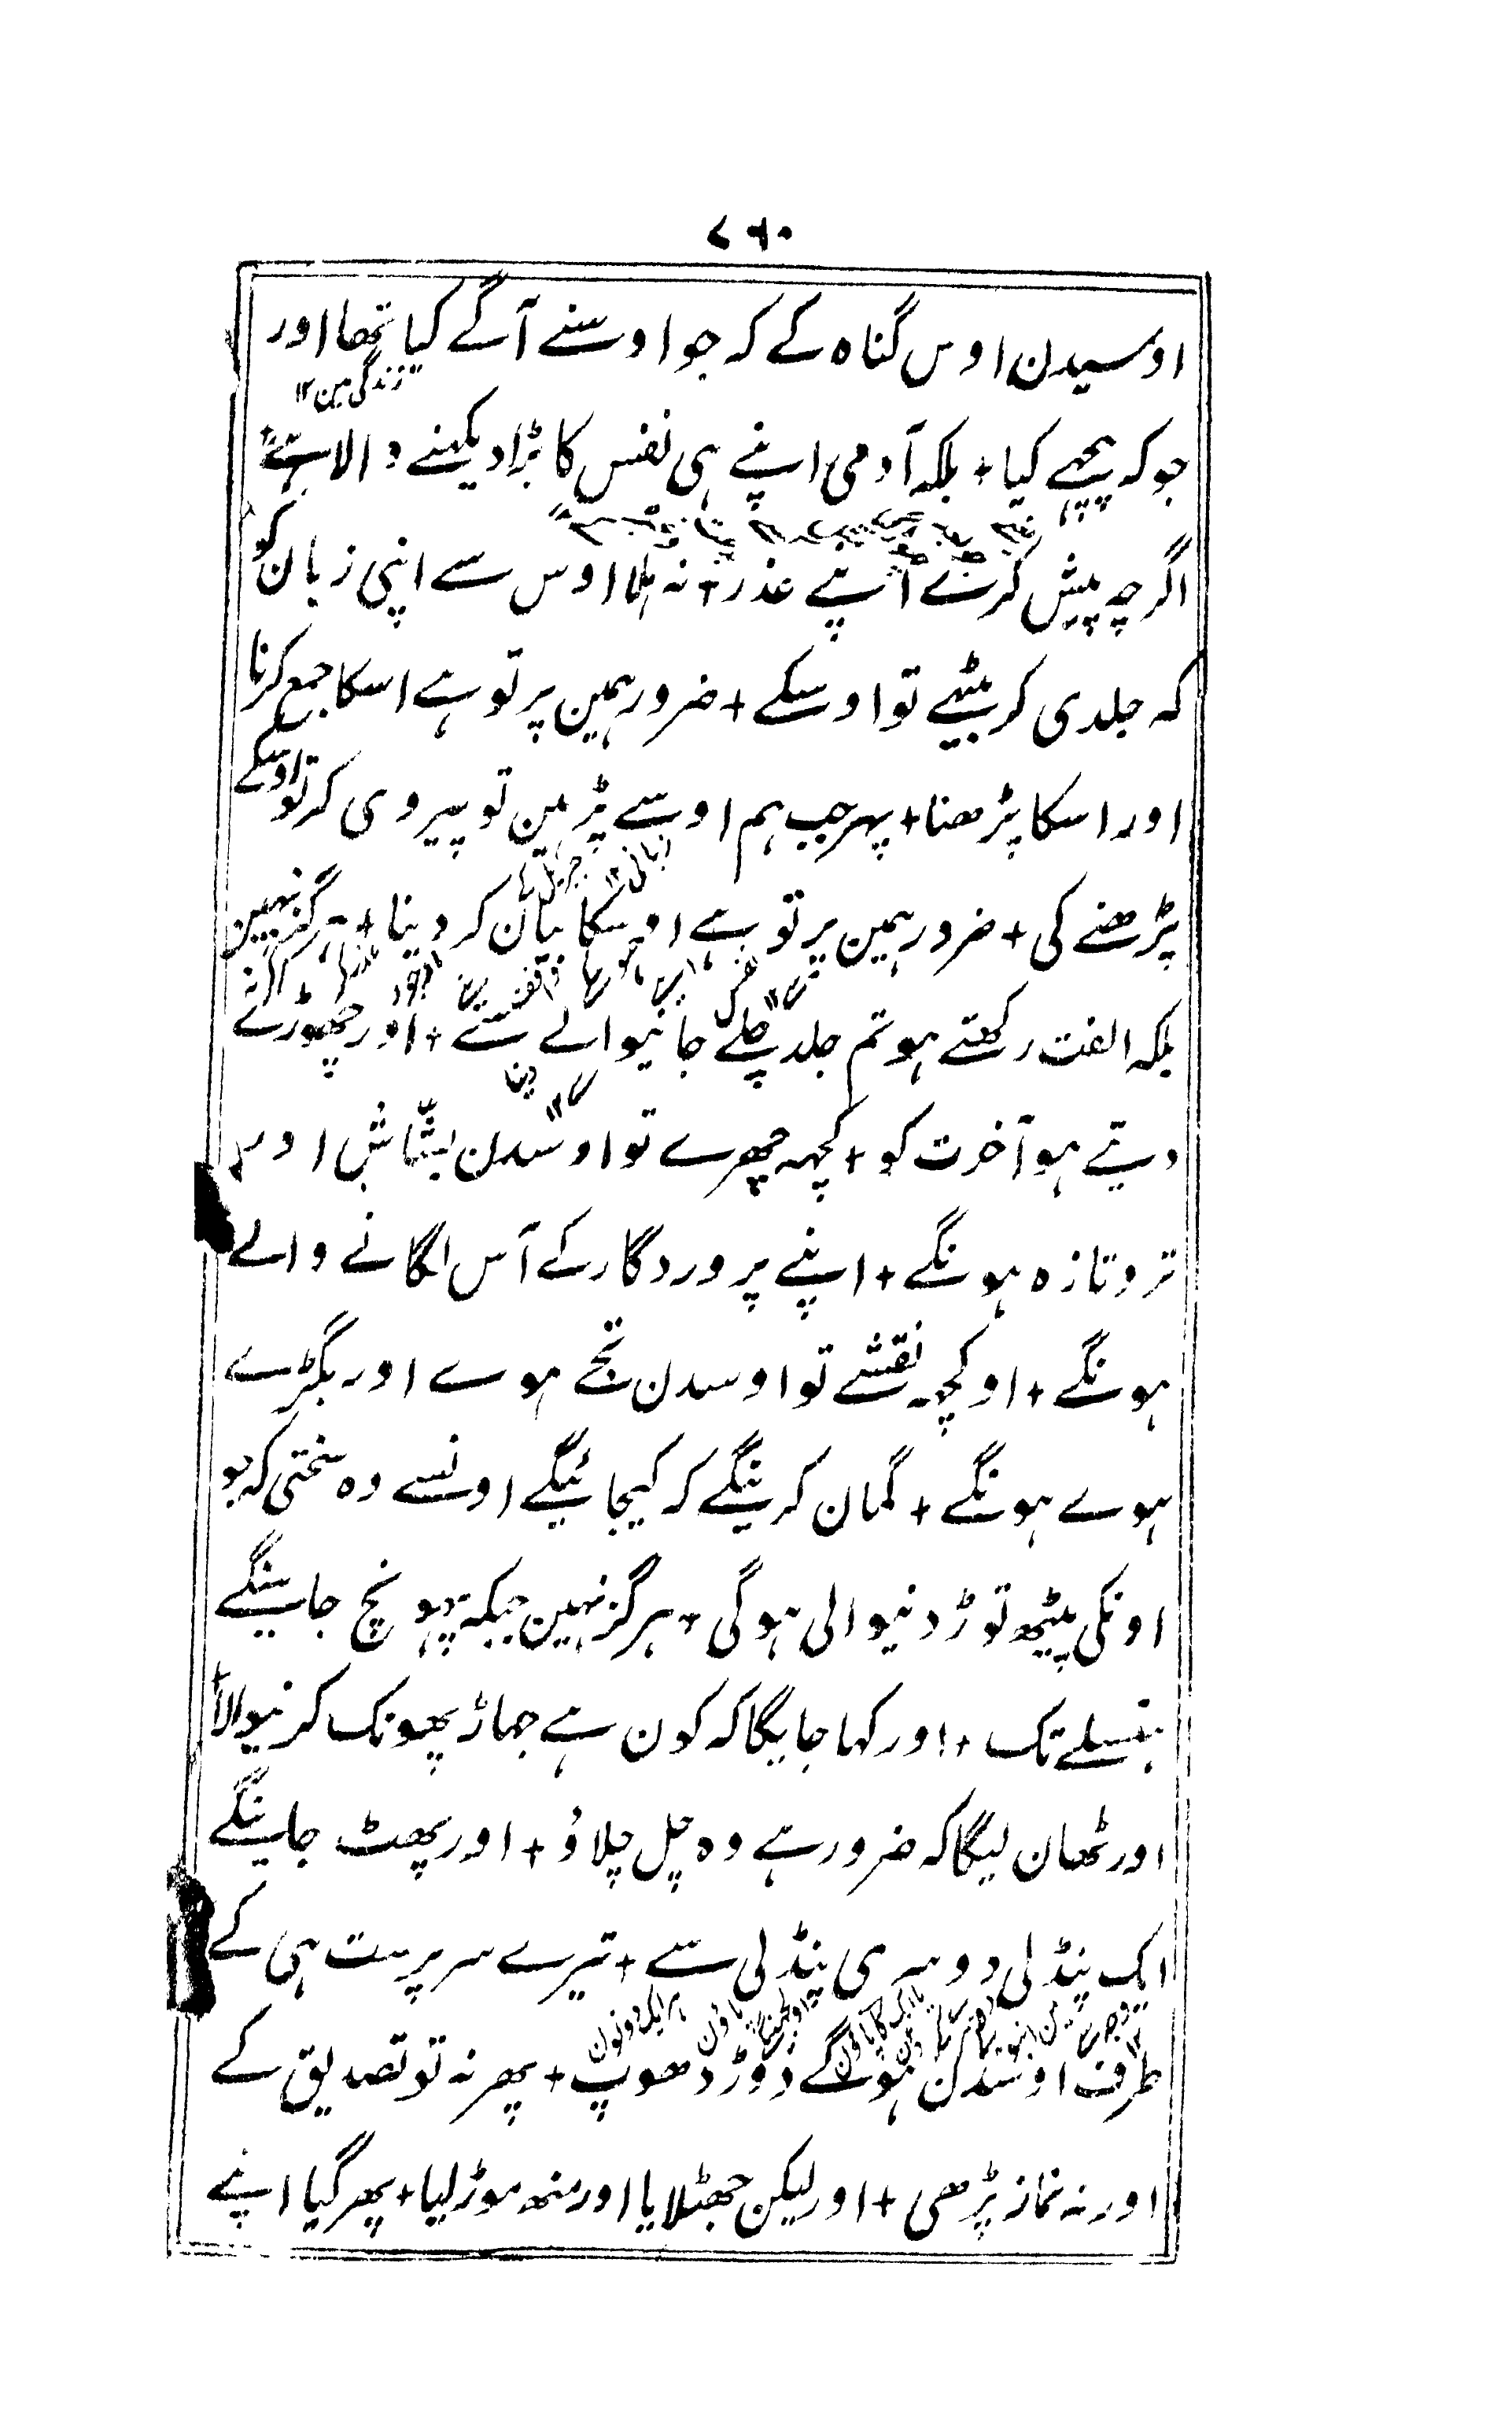 ۷۶۰
اوسیدن اوس گناہ کے کہ جو اوسنے آگے کیا تھا اور
زندگی مین ۱۲
جو کہ پیچھے کیا + بلکہ آدمی اپنے ہی نفس کا بڑا دیکھنے والا ہے +
اگرچہ پیش کرے اپنے عذر + نہ ہلا اوس سے اپنی زبان کو
کہ جلدی کر بیٹھے تو اوسکے + ضرور ہمین پر تو ہے اسکا جمع کرنا
اور اسکا پڑھنا + پھر جب ہم اوسے پڑہین تو پیروی کر تو اوسکے
زبانی جبرئیل کے ۱۲
پڑھنے کی + ضرور ہمین پر تو ہے اوسکا بیان کر دینا + ہرگز نہین
بلکہ الفت رکھتے ہو تم جلد چلے جانیوالے سے + اور چھوڑے
دنیا ۱۲
دیتے ہو آخرت کو + کچہہ چھرے تو اوسدن بشّاش اور
تروتازہ ہونگے + اپنے پروردگار کے آس لگانے والے
ہونگے + او کچہہ نقشے تو اوسدن تجے ہوے اور بگڑے
ہوے ہونگے + گمان کرینگے کہ کیجائیگے اونسے وہ سختی کہ جو
اونکی پیٹھ توڑ دنیوالی ہوگی + ہرگز نہین جبکہ پہونچ جاینگے
ہنسلے تک + اور کہا جایگا کہ کون ہے جھاڑ پھونک کرنیوالا +
اور ٹھان لیگا کہ ضرور ہے وہ چل چلاؤ + اور پھٹ جاینگے
ایک پنڈلی دوسری پنڈلی سے + تیرے سرپرست ہی کے
طرف اوسدن ہوگے دوڑ دھوپ + پھر نہ تو تصدیق کے
اور نہ نماز پڑھی + اور لیکن جھٹلایا اور منھ موڑ لیا + پھر گیا اپنے